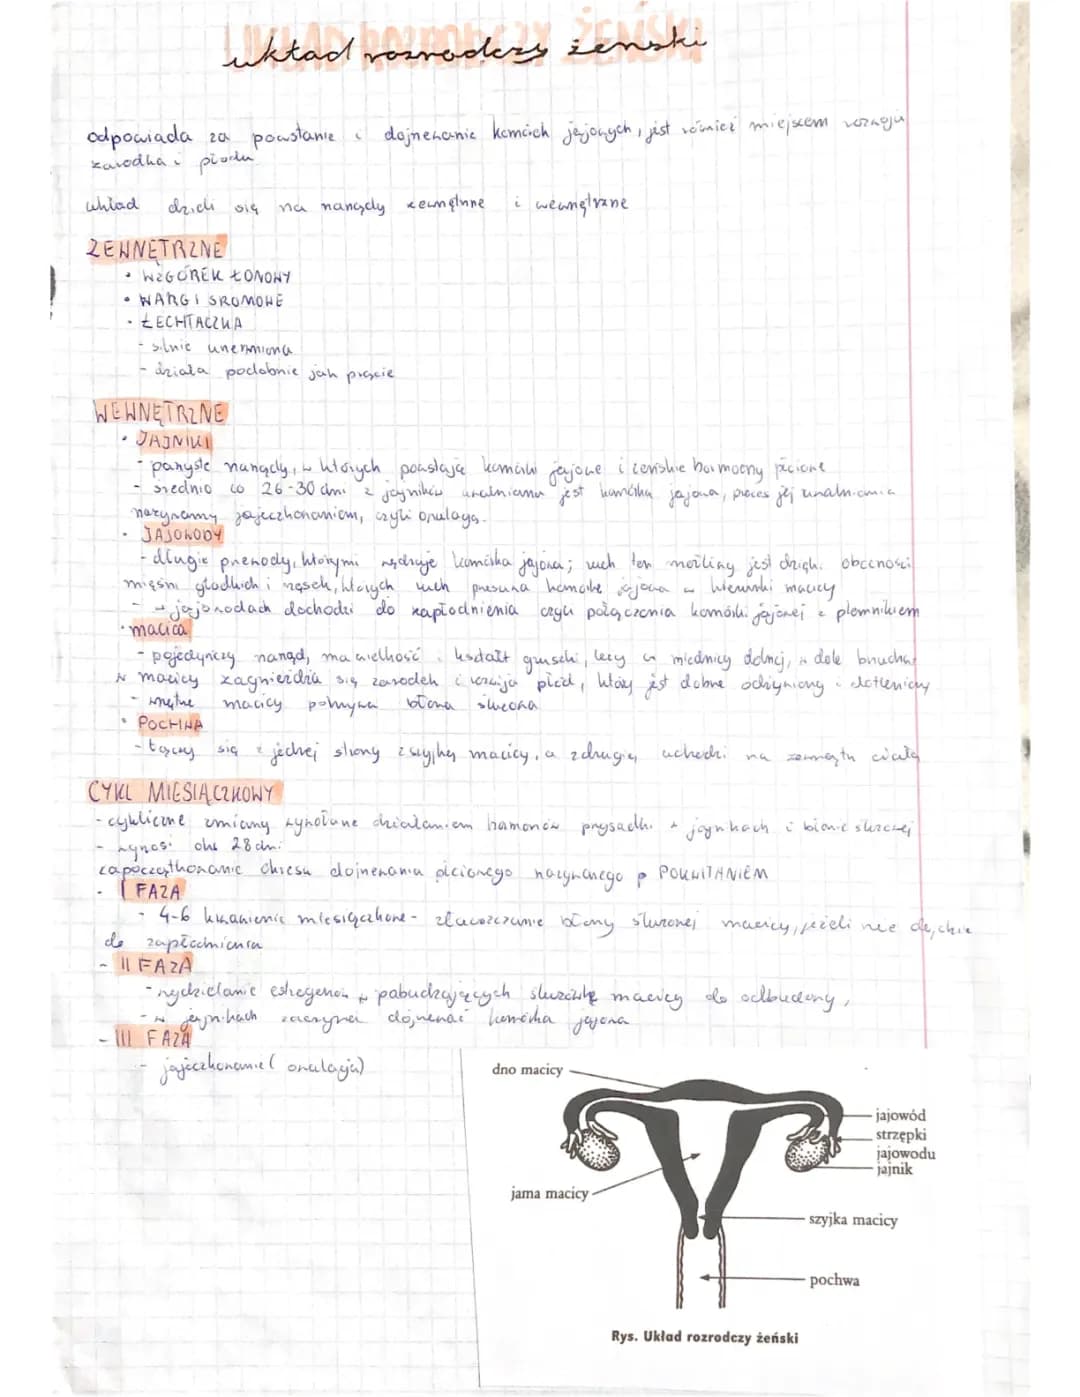 układ rozrodczy żeński
odpowiada za powstanie i dojrzewanie komórek jajowych, jest również miejscem rozwoju
zarodka i płodu
układ dzieli się na narządy zewnętrzne i wewnętrzne
ZEWNĘTRZNE
• WZGÓREK ŁONOWY
• WARGI SROMOWE
• ŁECHTACZKA
- silnie unerwiona
- działa podobnie jak prącie
WEWNĘTRZNE
• JAJNIKI
- parzyste narządy, w których powstają komórki jajowe i żeńskie hormony płciowe
- średnio co 26-30 dni z jajników uwalniana jest komórka jajowa, proces jej uwalniania
nazywamy jajeczkowaniem, czyli owulacją.
• JAJOWODY
- długie przewody, którymi wędruje komórka jajowa; ruch ten możliwy jest dzięki obecności
mięśni gładkich i rzęsek, których ruch przesuwa komórkę jajową w kierunku macicy
- w jajowodach dochodzi do zapłodnienia czyli połączenia komórki jajowej z plemnikiem
• macica
- pojedynczy narząd, ma wielkość i kształt gruszki, leży w miednicy dolnej, w dole brzucha
w macicy zagnieżdża się zarodek i rozwija płód, który jest dobrze odżywiony i dotleniony
- wnętrze macicy pokrywa błona śluzowa
• POCHWA
- łączy się z jednej strony z szyjką macicy, a z drugiej uchodzi na zewnątrz ciała
CYKL MIESIĄCZKOWY
- cykliczne zmiany wywołane działaniem hormonów przysadki w jajnikach i błonie śluzowej
- wynosi ok. 28 dni
zapoczątkowanie okresu dojrzewania płciowego nazywanego p POKWITANIEM
- I FAZA
- 4-6 krwawienie miesiączkowe - złuszczanie błony śluzowej macicy, jeżeli nie dojdzie
do zapłodnienia
- II FAZA
- wydzielanie estrogenów pobudzających śluzówkę macicy do odbudowy,
- w jajnikach zaczyna dojrzewać komórka jajowa
- III FAZA
- jajeczkowanie (owulacja)
dno macicy
jajowód
strzępki
jajowodu
jajnik
jama macicy
szyjka macicy
pochwa
Rys. Układ rozrodczy żeński